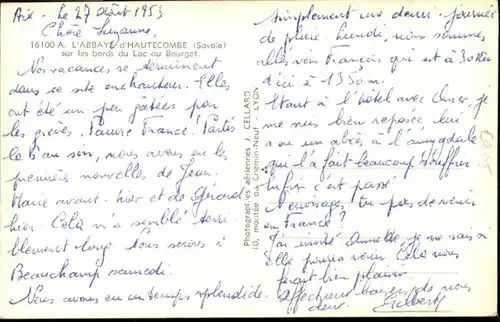 Aix. Le 27 Août 1953
Chère Suzanne,
16100 A. L'ABBAYE d'HAUTECOMBE (Savoie)
sur les bords du Lac du Bourget.
Nos vacances se terminent
dans ce site enchanteur. Elles
ont été un peu gâtées par
les grèves. Pauvre France! Partis
le 5 au soir, nous avons eu les
premières nouvelles de Jean
Marie avant-hier et de Gérard
hier. Cela m'a semblé terri-
blement long. Nous serons à
Beauchamp samedi.
Nous avons eu un temps splendide.
Photographies aériennes J. CELLARD
10, montée du Chemin-Neuf - LYON
simplement une demi-journée
de pluie. Lundi, nous sommes
allés voir François qui est à 30 km
d'ici à 1350 m.
Etant à l'hôtel avec je
me suis bien reposée lui
a eu un abcès à l'amygdale
qui l'a fait beaucoup souffrir
enfin c'est passé!
N'envisages-tu pas de venir
en France?
J'ai invité Annette, je ne sais si
elle pourra venir. Cela nous
ferait bien plaisir.
Affectueux baisers de nous
deux. Gilbert